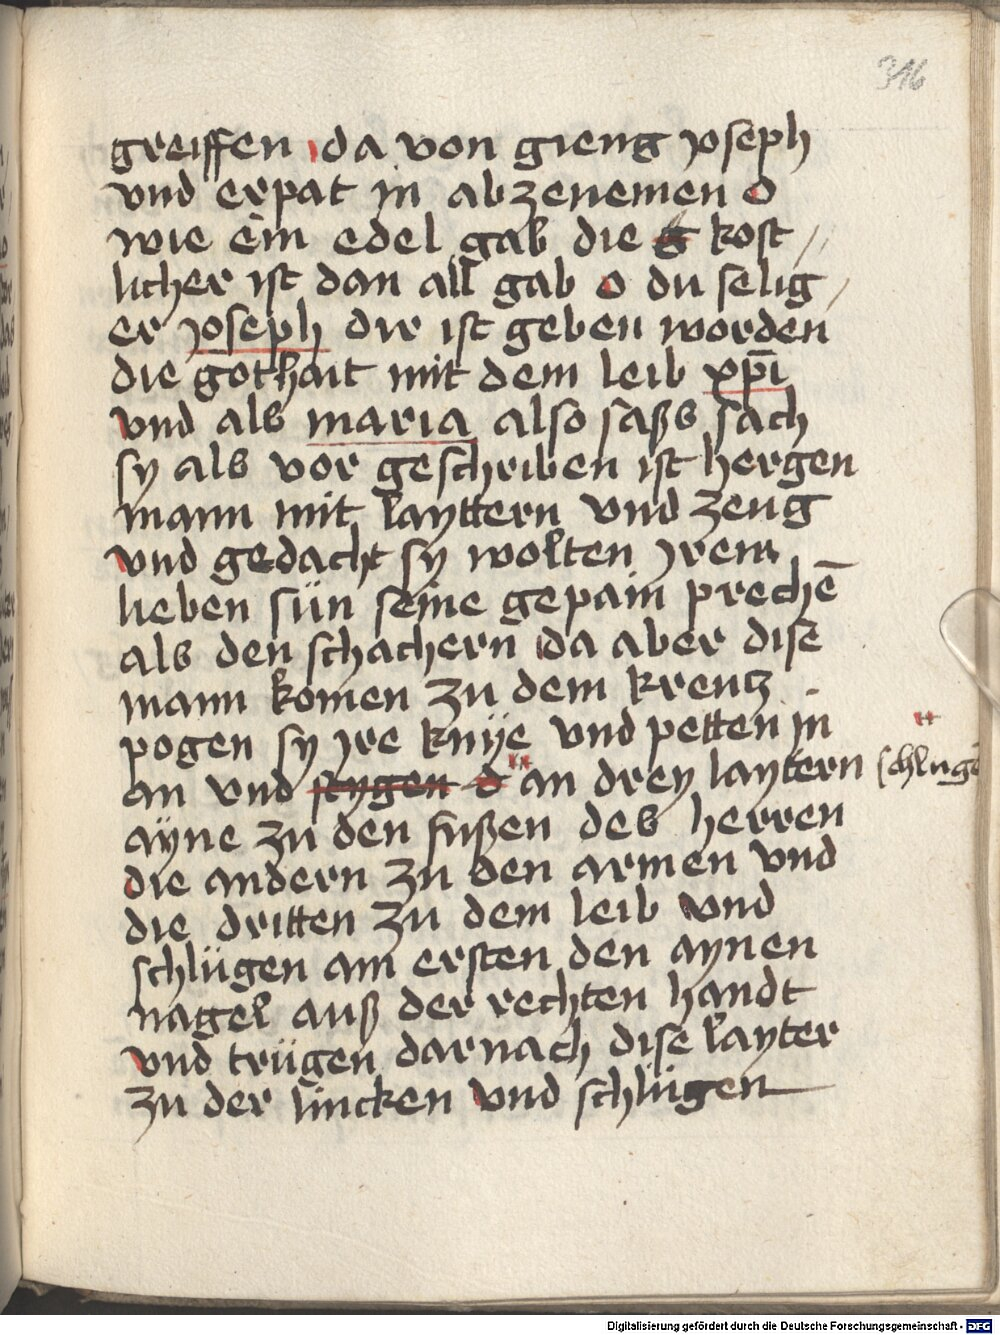 316
greiffen da von gieng yoseph
vnd erpat in abzenemen o
wie ein edel gab die g kost //
licher ist dan all gab o du selig /
er yoseph dir ist geben worden
die gothait mit dem leib xp̄i
vnd als maria also saßs sach
sy als vor geschriben ist hergen
mann mit layttern vnd zeug
vnd gedacht sy wolten yrem
lieben sün seine gepain prechē
als den schachern da aber dise
mann komen zu dem kreutz
pogen sy yre knÿe vnd petten in
an vnd stygen d " an drey laytern schlugē
aÿne zu den fußen des herren
die andern zu den armen vnd
die dritten zu dem leib vnd
schlügen am ersten den aynen
nagel auß der rechten handt
vnd trügen darnach dise layter
zu der lincken vnd schlügen
Digitalisierung gefördert durch die Deutsche Forschungsgemeinschaft - DFG